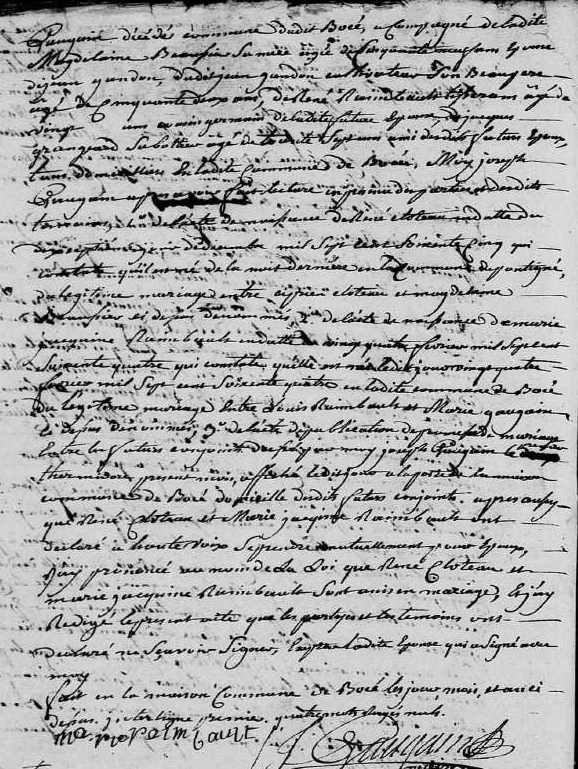 décédés commune dudit Bocé, accompagné de ladite
Magdelaine Beaufier sa mère âgée de cinquante neuf ans épouse
de jean gandon, dudit jean gandon cultivateur son Beaupere
agé de Cinquante deux ans, de René Raimbault tisseran âgé de
vingt ans cousin germain de ladite future Epouse, de jacques
grangeard Sabottier agé de trente Sept ans ami desdits futurs Epoux,
tous domiciliés en ladite Commune de Bocé, Moy joseph
Gauquin après avoir fait lecture en présence des parties et desdits
temoins, 1° de l'acte de naissance de René Cloteau en datte du
dix septieme jour de décembre mil Sept cent Soixante Cinq qui
constate qu'il est né de la nuit dernière en la commune de pontigné,
du légitime mariage entre Cloteau et magdeleine
Beaufier ci dessus dénommés, 2° de l'acte de naissance de marie
jacquine Raimbault en datte du vingt quatre fevrier mil Sept cent
Soixante quatre qui constate qu'elle est née le dit jour vingt quatre
fevrier mil Sept cent Soixante quatre en ladite commune de Bocé
du légitime mariage entre Louis Raimbault et Marie
ci dessus dénommés, 3° de l'acte de publication de promesse de mariage
entre les futurs conjoints dressé par moy joseph Gauquin le
thermidor present mois, affiché le dit jour a la porte de la maison
commune de Bocé domicille desdits futurs conjoints. apres aussy
que René Cloteau et Marie jacquine Raimbault ont
déclaré a haute voix Se prendre mutuellement pour Epoux,
j'ay prononcé au nom de La Loi que René Cloteau et
marie jacquine Raimbault Sont unis en mariage, et j'ay
Rédigé le present acte que les parties et les temoins ont
declaré ne Scavoir Signer, excepté ladite Epouse qui a Signé avec
moy
fait en la maison Commune de Bocé les jour, mois, et an ci
dessus. interligne premier, quatre mots rayés nuls.
marie raimbault J. Gauquin